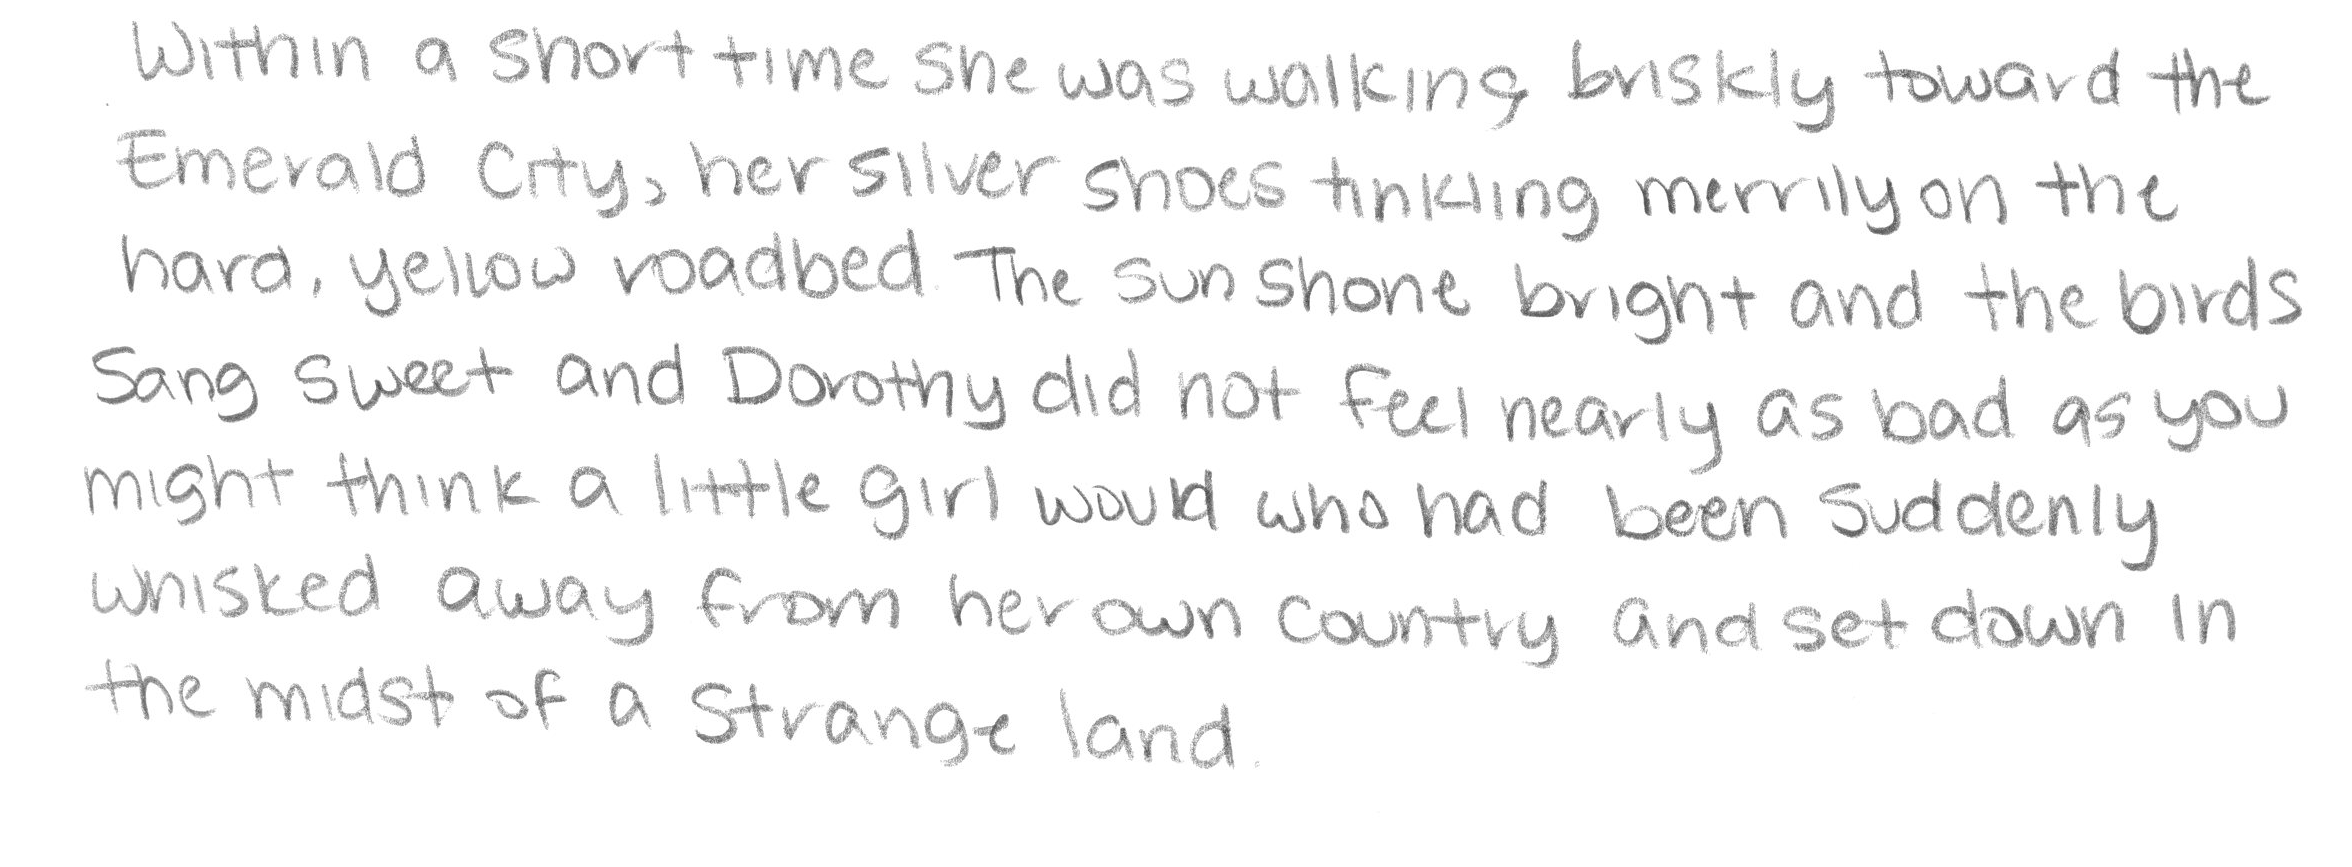 Within a short time she was walking briskly toward the
Emerald City, her silver shoes tinkling merrily on the
hard, yellow roadbed. The sun shone bright and the birds
Sang sweet and Dorothy did not feel nearly as bad as you
might think a little girl would who had been suddenly
whisked away from her own country and set down in
the midst of a strange land.